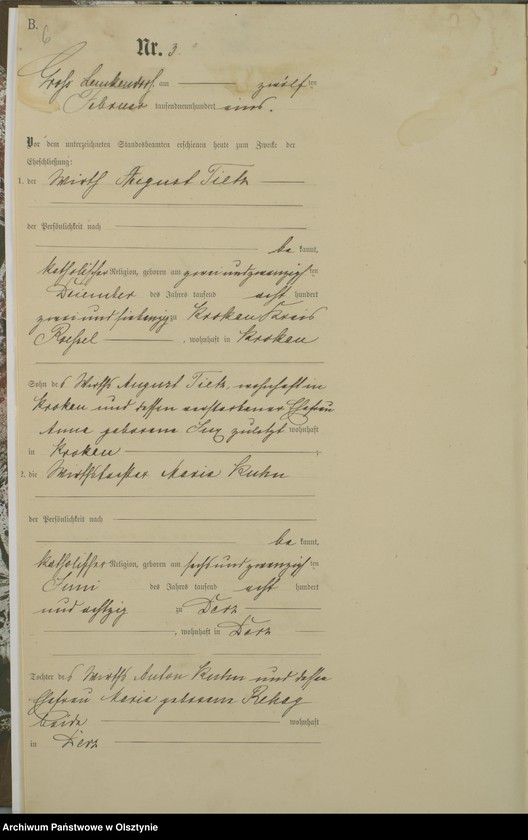 B.
6
Nr. 3
Gross Lemkendorf am zwölf ten
Februar tausendneunhundert eins.
Vor dem unterzeichneten Standesbeamten erschienen heute zum Zwecke der
Eheschließung:
1. der Wirth August Tietz
der Persönlichkeit nach
be kannt,
katholischer Religion, geboren am zweiundzwanzig ten
Dezember des Jahrs tausend acht hundert
zweiundsiebenzig zu Kroken Kreis
Roessel, wohnhaft in Kroken
Sohn des Wirths August Tietz, wohnhaft in
Kroken und dessen verstorbener Ehefrau
Anna geborene zuletzt wohnhaft
in Kroken ;
2. die Wirthstochter Maria Kuhn
der Persönlichkeit nach
be kannt,
katholischer Religion, geboren am sechsundzwanzig ten
Juni des Jahrs tausend acht hundert
und achtzig zu Derz
, wohnhaft in Derz
Tochter des Wirths Anton Kuhn und dessen
Ehefrau Maria geborene Rehag
beide wohnhaft
in Derz
Archiwum Państwowe w Olsztynie